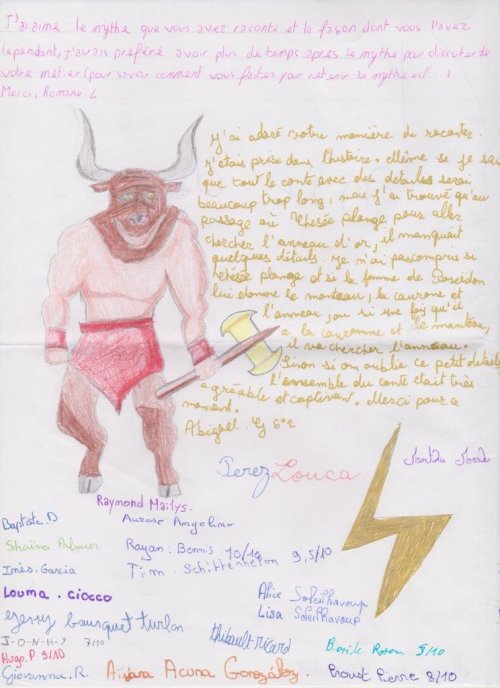 J'ai aimé le mythe que vous avez raconté et la façon dont vous l'avez.
Cependant, j'aurais préféré avoir plus de temps après le mythe pour discuter de
votre métier (pour savoir comment vous faites pour retenir le mythe ect... )
Merci, Romane. L
J'ai adoré votre manière de raconter.
j'étais prise dans l'histoire. Même si je sais
que tout le conte avec des détails serai
beaucoup trop long, mais j'ai trouvé qu'au
passage où Thésée plonge pour allez
chercher l'anneau d'or, il manquait
quelques détails. Je n'ai pas compris si
Thésée plonge et si la femme de Poseidon
lui donne le manteau, la couronne et
l'anneau, ou si une foy qu'il
a la couronne et le manteau,
il va chercher l'anneau.
Sinon si on oublie ce petit détails
l'ensemble du conte était très
agréable et captivant. Merci pour ce
moment.
Abigaël. G 6°2
Perez Louca
Raymond Mailys.
Baptiste. D
Aurore Angelina
Shaïna Palmier
Rayan. Bennis 10/10 9,5/10
Inès. Garcia
Tim. Schittenhelm
Louma. ciocco
Alice Soleilhavoup
Lisa Soleilhavoup
Jerry bousquet turlan
J-O-N-H-Y 7/10
Thibault ricard
Basile 9/10
Hugo. P 9/10
Giovanna. R.
Aitana Acuna González.
Proust Pierre 8/10